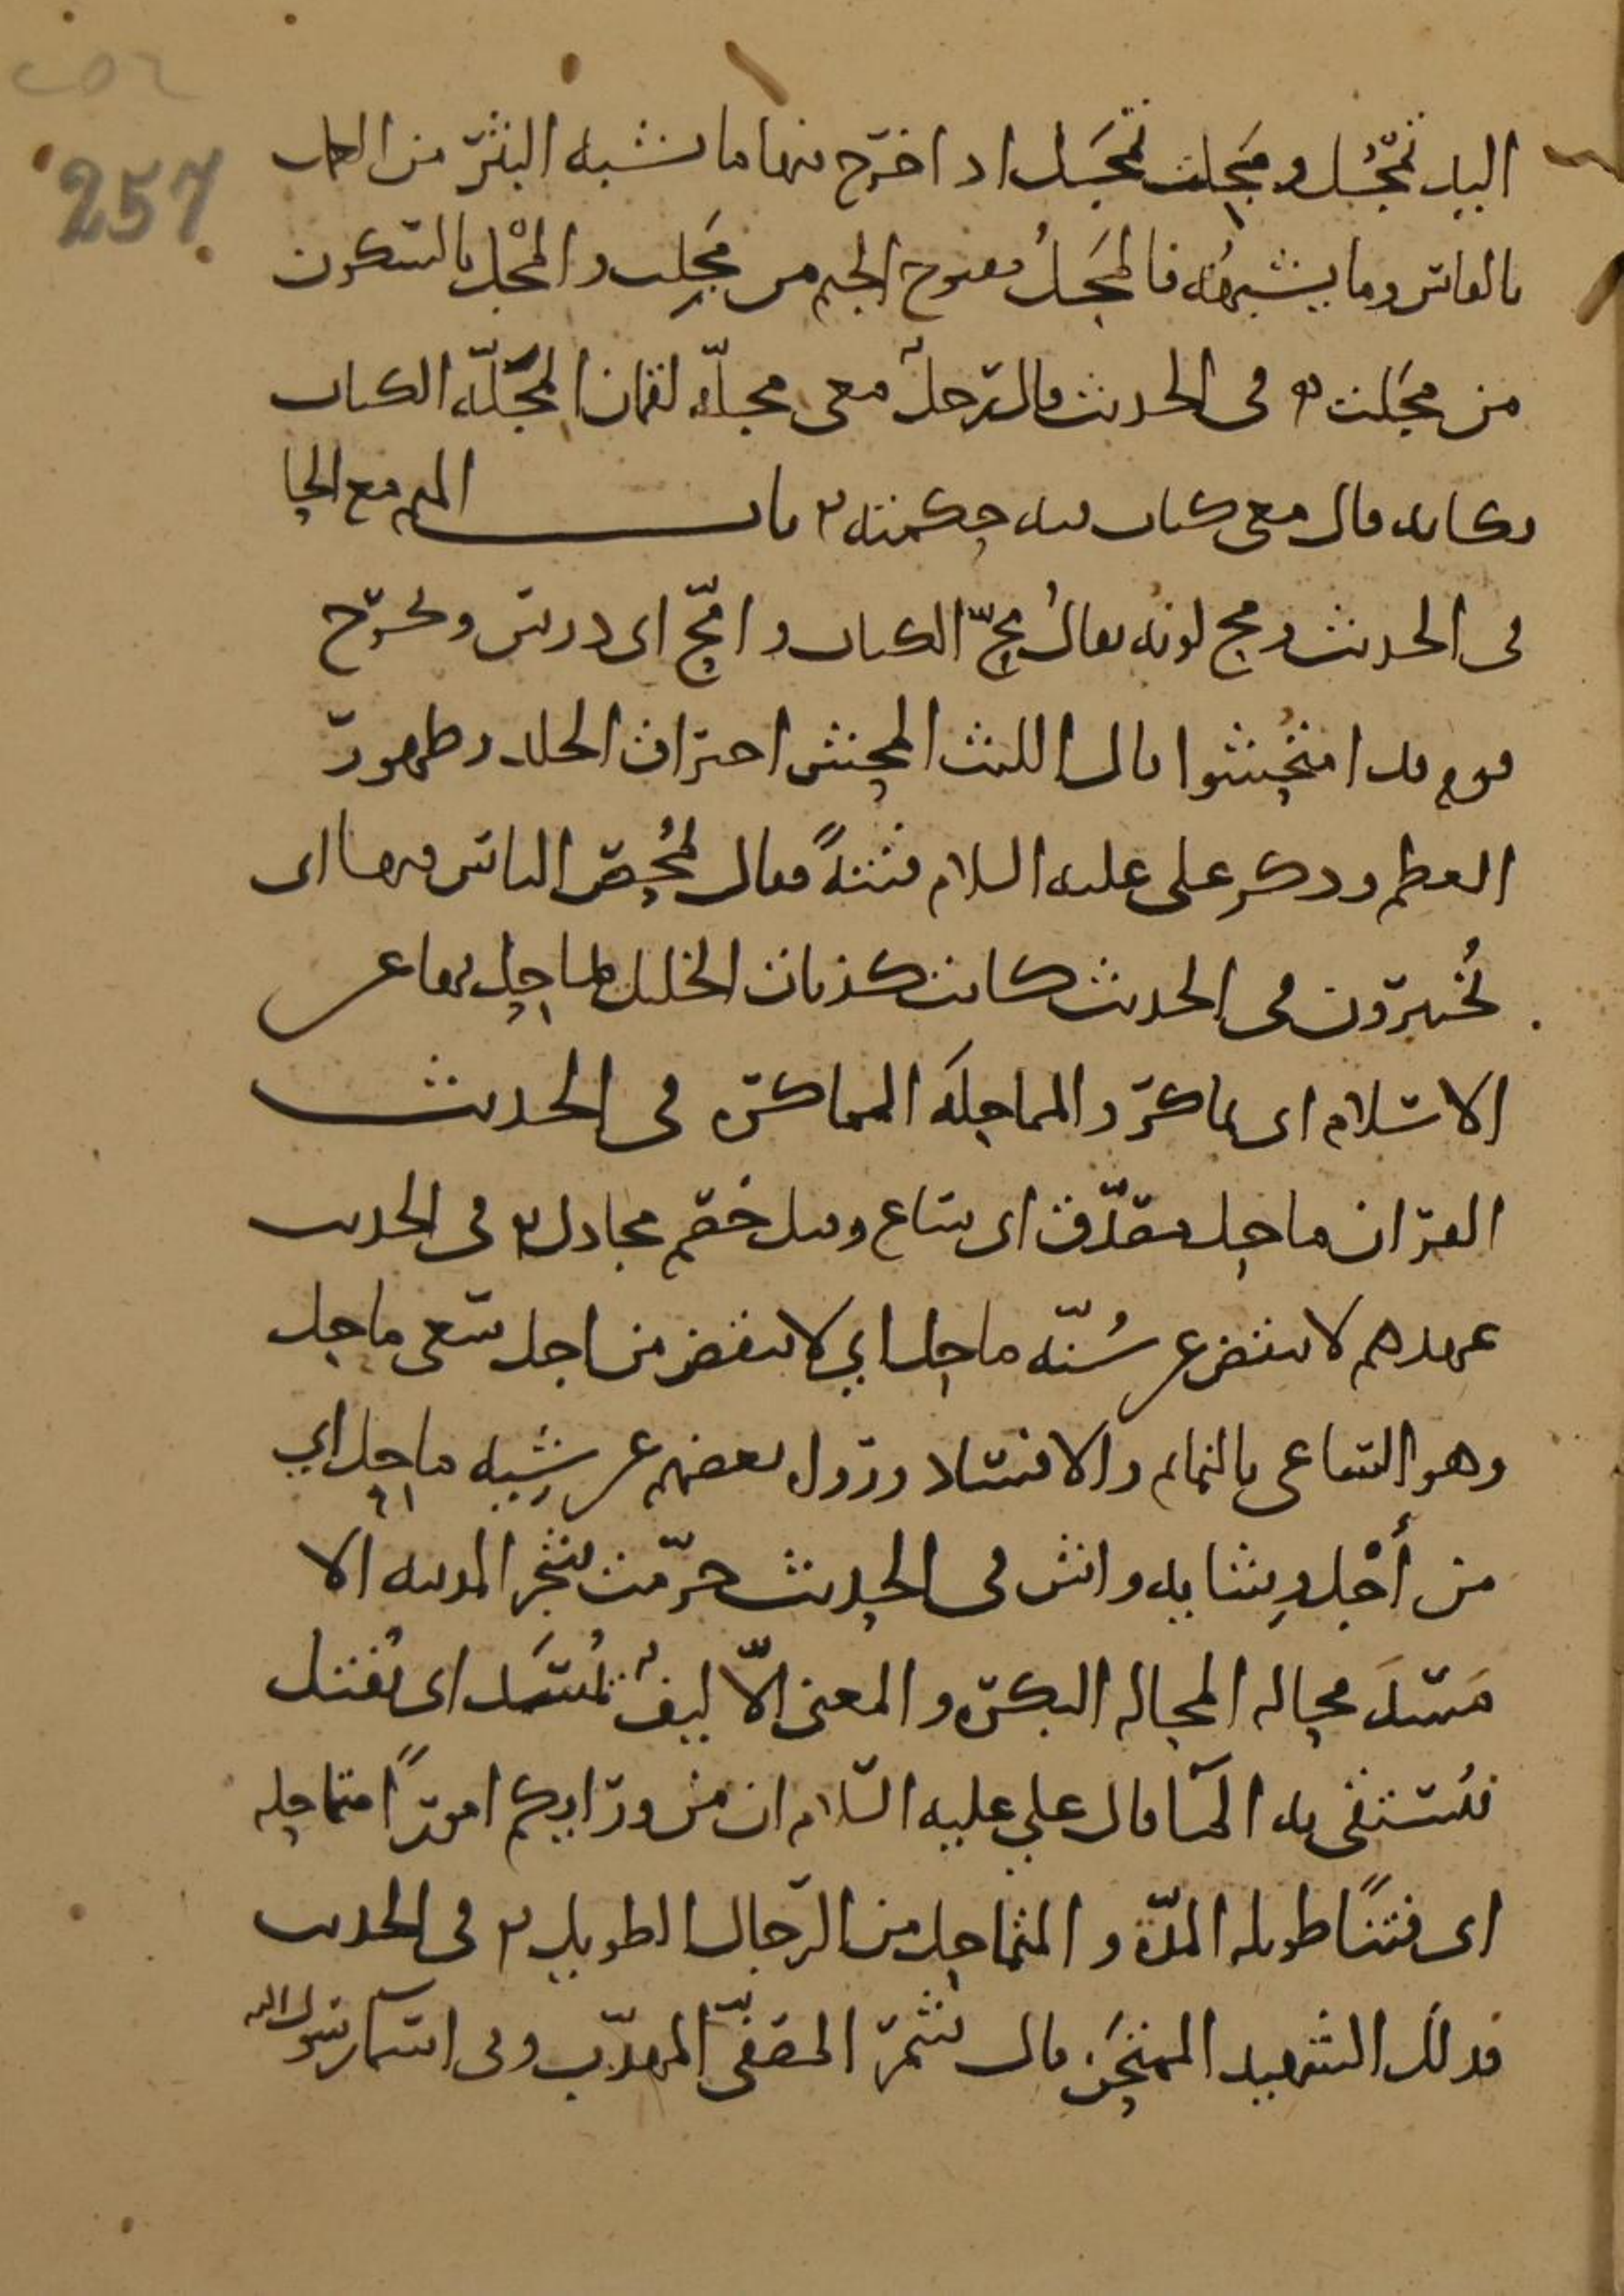 ٢٥٧
257
اليد تمجُل ومَجِلت تمجَل اذا خرج منها ما يشبه البثر من العمل
بالفاس وما يشبهه فالمَجَلُ مفتوح الجيم من مَجِلت والمجْل بالسكون
من مجَلت ٥ في الحديث قال رجل معي مجلّة لقمان المجَلّه الكتاب
وكانه قال معي كتاب فيه حكمته ٥ باب الميم مع الحا
في الحديث ومح لونه يقالُ محّ الكتاب وامّح اي درس وتخرج
قوم قد امتُحِشوا قال الليث المحش احتراق الجلد وظهور
العظم وذكر علي عليه السلام فتنةً فقال يُمحص الناس فيها اي
يُختبرون في الحديث كانت كذبات الخليل يماحل بها عن
الاسلام اي يماكر والمماحلَه المماكره في الحديث
القران ماحل مصدّق اي ساع وقيل خصم مجادل ٥ في الحديث
عهدهم لا ينقض عن سُنّه ماحل اي لا ينقض من اجل سعي ماحل
وهو الساعي بالنمايم والافساد وروى بعضهم عن شِيه ماحل اي
من أجْل وِشايه واش في الحديث حرّمت شجر المدينه الا
مَسَدَ محاله المحاله البكره والمعنى الّا ليفٌ يُمسَد اي يُفتل
فيُستسقى به الما قال علي عليه السلام ان من ورايكم امورًا متماحله
اي فتنًا طويله المدّة والمتماحل من الرجال الطويل ٥ في الحديث
فذلك الشهيد الممتحَن قال شمر المصفّى المهذّب وفي اسما رسول الله